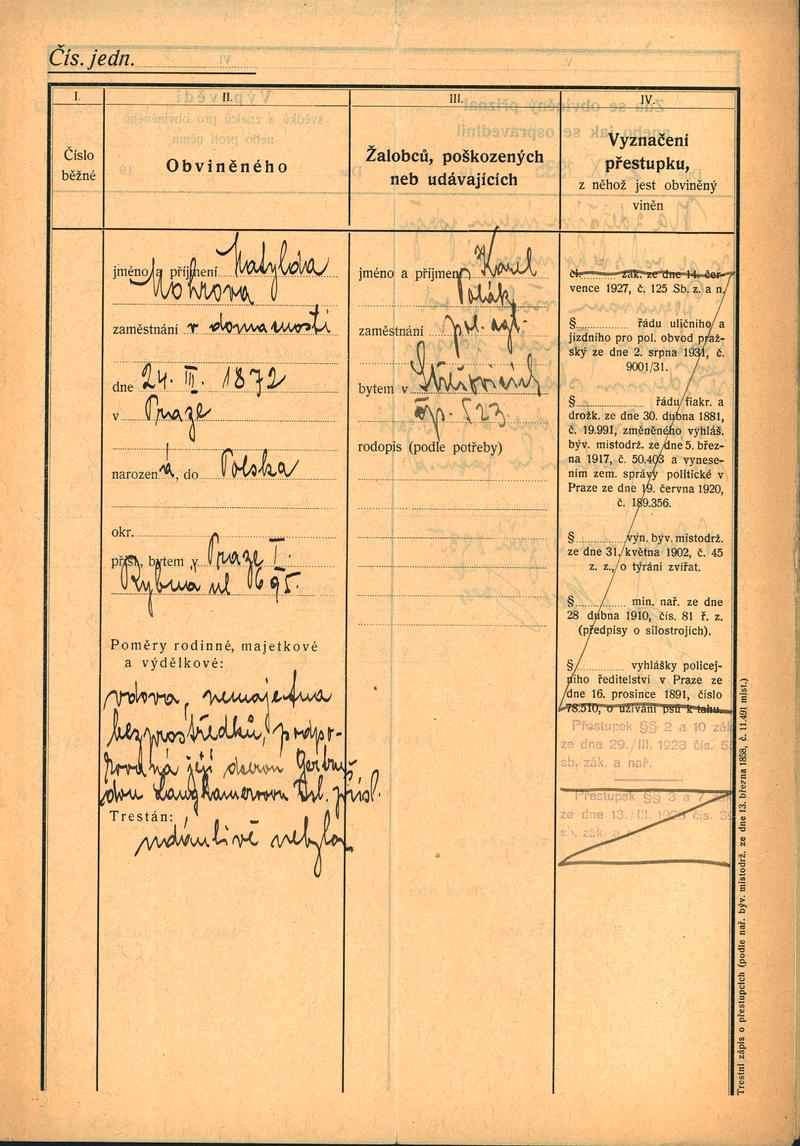 Čís. jedn.
I.
II.
III.
IV.
Číslo
běžné
Obviněného
Žalobců, poškozených
neb udávajících
Vyznačení
přestupku,
z něhož jest obviněný
viněn
jméno a příjmení Matylda
Mohrova
zaměstnání v domacnosti
dne 24. III. 1872
v Praze
narozena, do Polska
okr.
přísl. bytem v Praze I.
Rybna ul 695.
Poměry rodinné, majetkové
a výdělkové:
vdova, nemajetna
bez prostředků, podpo-
rována její dcerou
přísl.
Trestán:
udánlivě nebyla
jméno a příjmení Karel
Polák
zaměstnání pol. agt.
bytem v Střešovicích
čp. 523
rodopis (podle potřeby)
čl. zák. ze dne 14. čer-
vence 1927, č. 125 Sb. z. a n.
§ řádu uličního a
jízdního pro pol. obvod praž-
ský ze dne 2. srpna 1931, č.
9001/31.
§ řádu fiakr. a
drožk. ze dne 30. dubna 1881,
č. 19.991, změněného vyhláš.
býv. místodrž. ze dne 5. břez-
na 1917, č. 50.403 a vynese-
ním zem. správy politické v
Praze ze dne 19. června 1920,
č. 189.356.
§ výn. býv. místodrž.
ze dne 31. května 1902, č. 45
z. z., o týrání zvířat.
§ min. nař. ze dne
28 dubna 1910, čís. 81 ř. z.
(předpisy o silostrojích).
§ vyhlášky policej-
ního ředitelství v Praze ze
dne 16. prosince 1891, číslo
78.510, o užívání psů k tahu.
Přestupek §§ 2 a 10 zák
ze dne 29./III. 1928 čís.
sb. zák. a nař.
Přestupek §§ 3 a 7
ze dne 13./III. 1928 čís.
sb. zák. a
Trestní zápis o přestupcích (podle nař. býv. místodrž. ze dne 13. března 1858, č. 11.491 míst.)